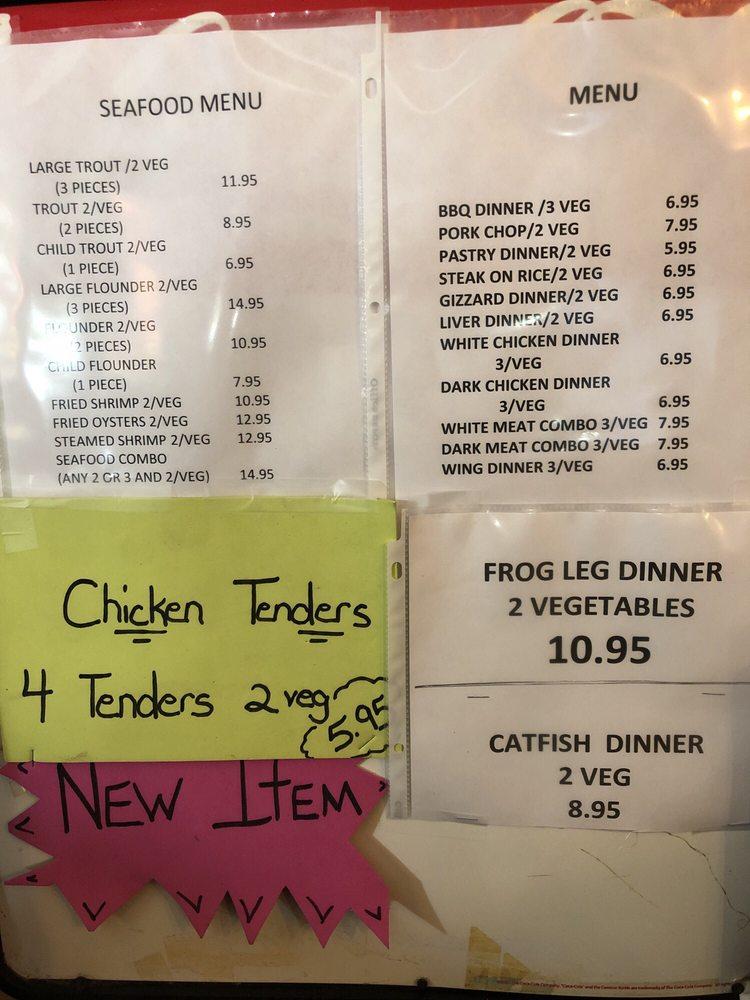 SEAFOOD MENU
LARGE TROUT /2 VEG
(3 PIECES) 11.95
TROUT 2/VEG
(2 PIECES) 8.95
CHILD TROUT 2/VEG
(1 PIECE) 6.95
LARGE FLOUNDER 2/VEG
(3 PIECES) 14.95
FLOUNDER 2/VEG
(2 PIECES) 10.95
CHILD FLOUNDER
(1 PIECE) 7.95
FRIED SHRIMP 2/VEG 10.95
FRIED OYSTERS 2/VEG 12.95
STEAMED SHRIMP 2/VEG 12.95
SEAFOOD COMBO
(ANY 2 OR 3 AND 2/VEG) 14.95
MENU
BBQ DINNER /3 VEG 6.95
PORK CHOP/2 VEG 7.95
PASTRY DINNER/2 VEG 5.95
STEAK ON RICE/2 VEG 6.95
GIZZARD DINNER/2 VEG 6.95
LIVER DINNER/2 VEG 6.95
WHITE CHICKEN DINNER
3/VEG 6.95
DARK CHICKEN DINNER
3/VEG 6.95
WHITE MEAT COMBO 3/VEG 7.95
DARK MEAT COMBO 3/VEG 7.95
WING DINNER 3/VEG 6.95
Chicken Tenders
4 Tenders 2 veg 5.95
NEW ITEM
FROG LEG DINNER
2 VEGETABLES
10.95
CATFISH DINNER
2 VEG
8.95